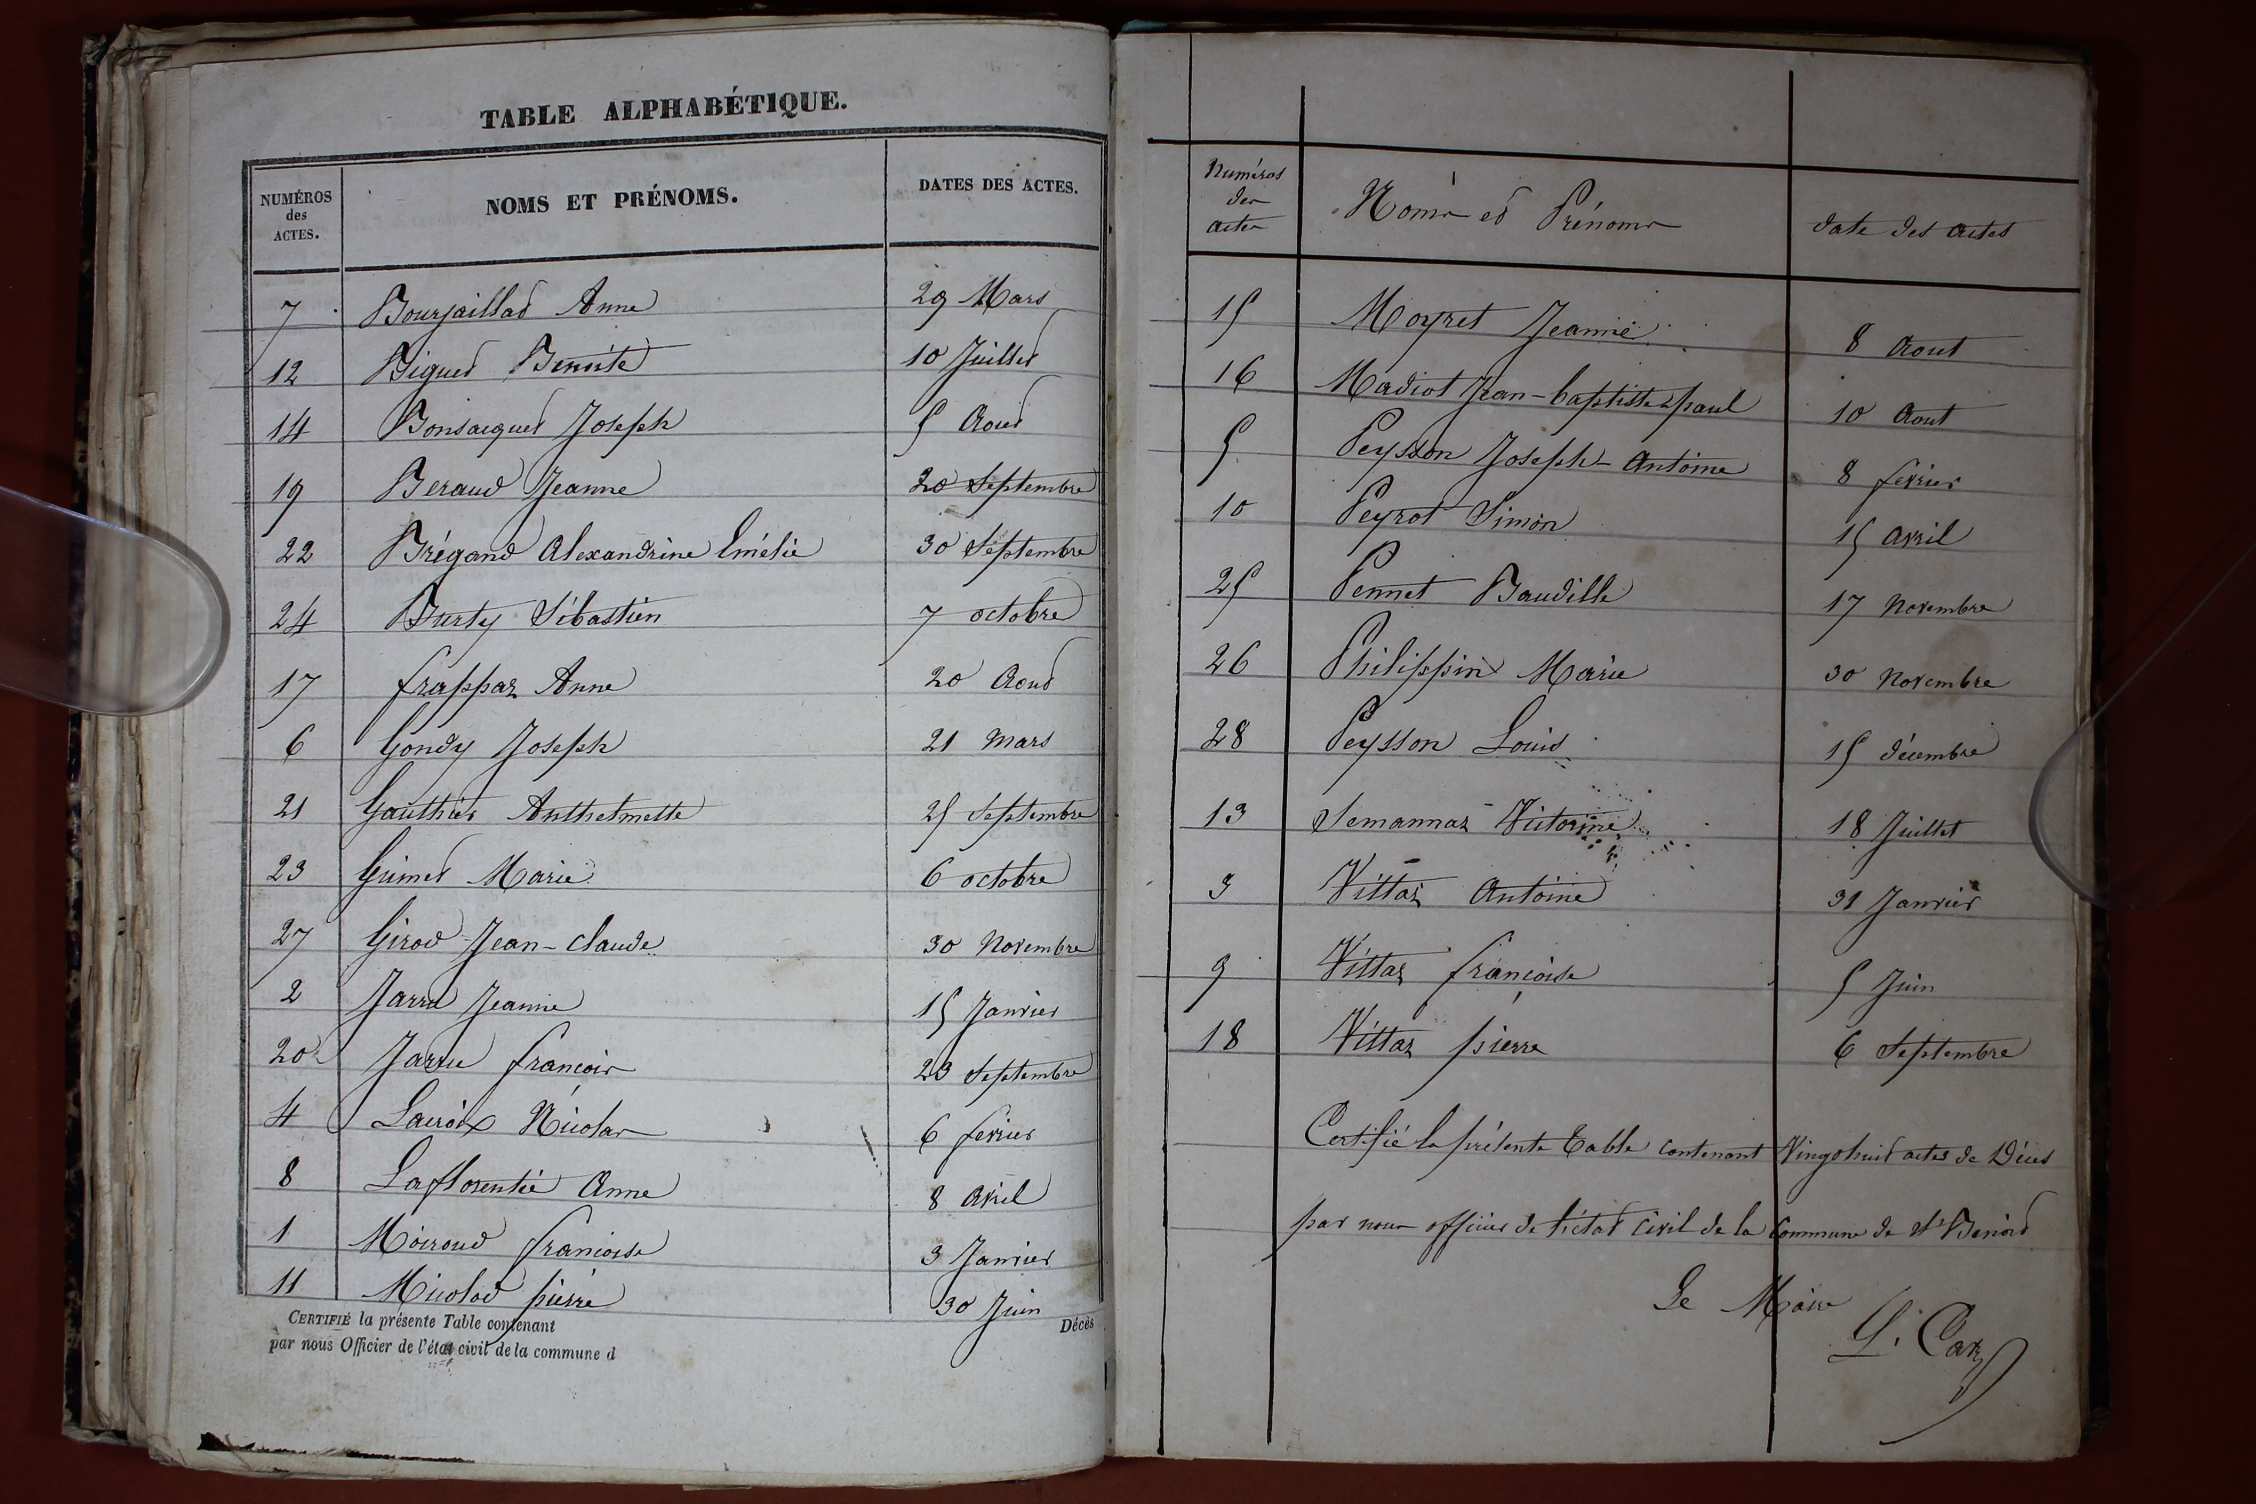 TABLE ALPHABÉTIQUE.
NUMÉROS des ACTES. NOMS ET PRÉNOMS. DATES DES ACTES.
7 Bourjaillat Anne 29 Mars
12 Biguet Benoite 10 Juillet
14 Bonsacquet Joseph 5 Aout
19 Beraud Jeanne 20 Septembre
22 Brégand Alexandrine Emélie 30 Septembre
24 Burty Sébastien 7 octobre
17 frappaz Anne 20 Aout
6 Gondy Joseph 21 Mars
21 Gauthier Anthelmette 25 Septembre
23 Grimet Marie 6 octobre
27 Girod Jean-Claude 30 Novembre
2 Jeanne 15 Janvier
20 francois 23 Septembre
4 Lacroix Nicolas 6 fevrier
8 Laflorentie Anne 8 Avril
1 Moiroud francoise 3 Janvier
11 Micolod pierre 30 Juin
CERTIFIÉ la présente Table contenant Décès
par nous Officier de l'état civil de la commune d
Numéros des actes Noms et Prénoms date des actes
15 Moyret Jeanne 8 Aout
16 Madiot Jean-baptiste paul 10 Aout
5 Peysson Joseph-Antoine 8 fevrier
10 Peyrot Simon 15 Avril
25 Pennet Baudille 17 Novembre
26 Philippin Marie 30 Novembre
28 Peysson Louis 15 décembre
13 Semannaz Victorine 18 Juillet
3 Vittaz Antoine 31 Janvier
9 Vittaz francoise 5 Juin
18 Vittaz pierre 6 Septembre
Certifié la présente Table contenant Vingt huit actes de Décès
par nous officier de l'état civil de la commune de St Benoit
Le Maire